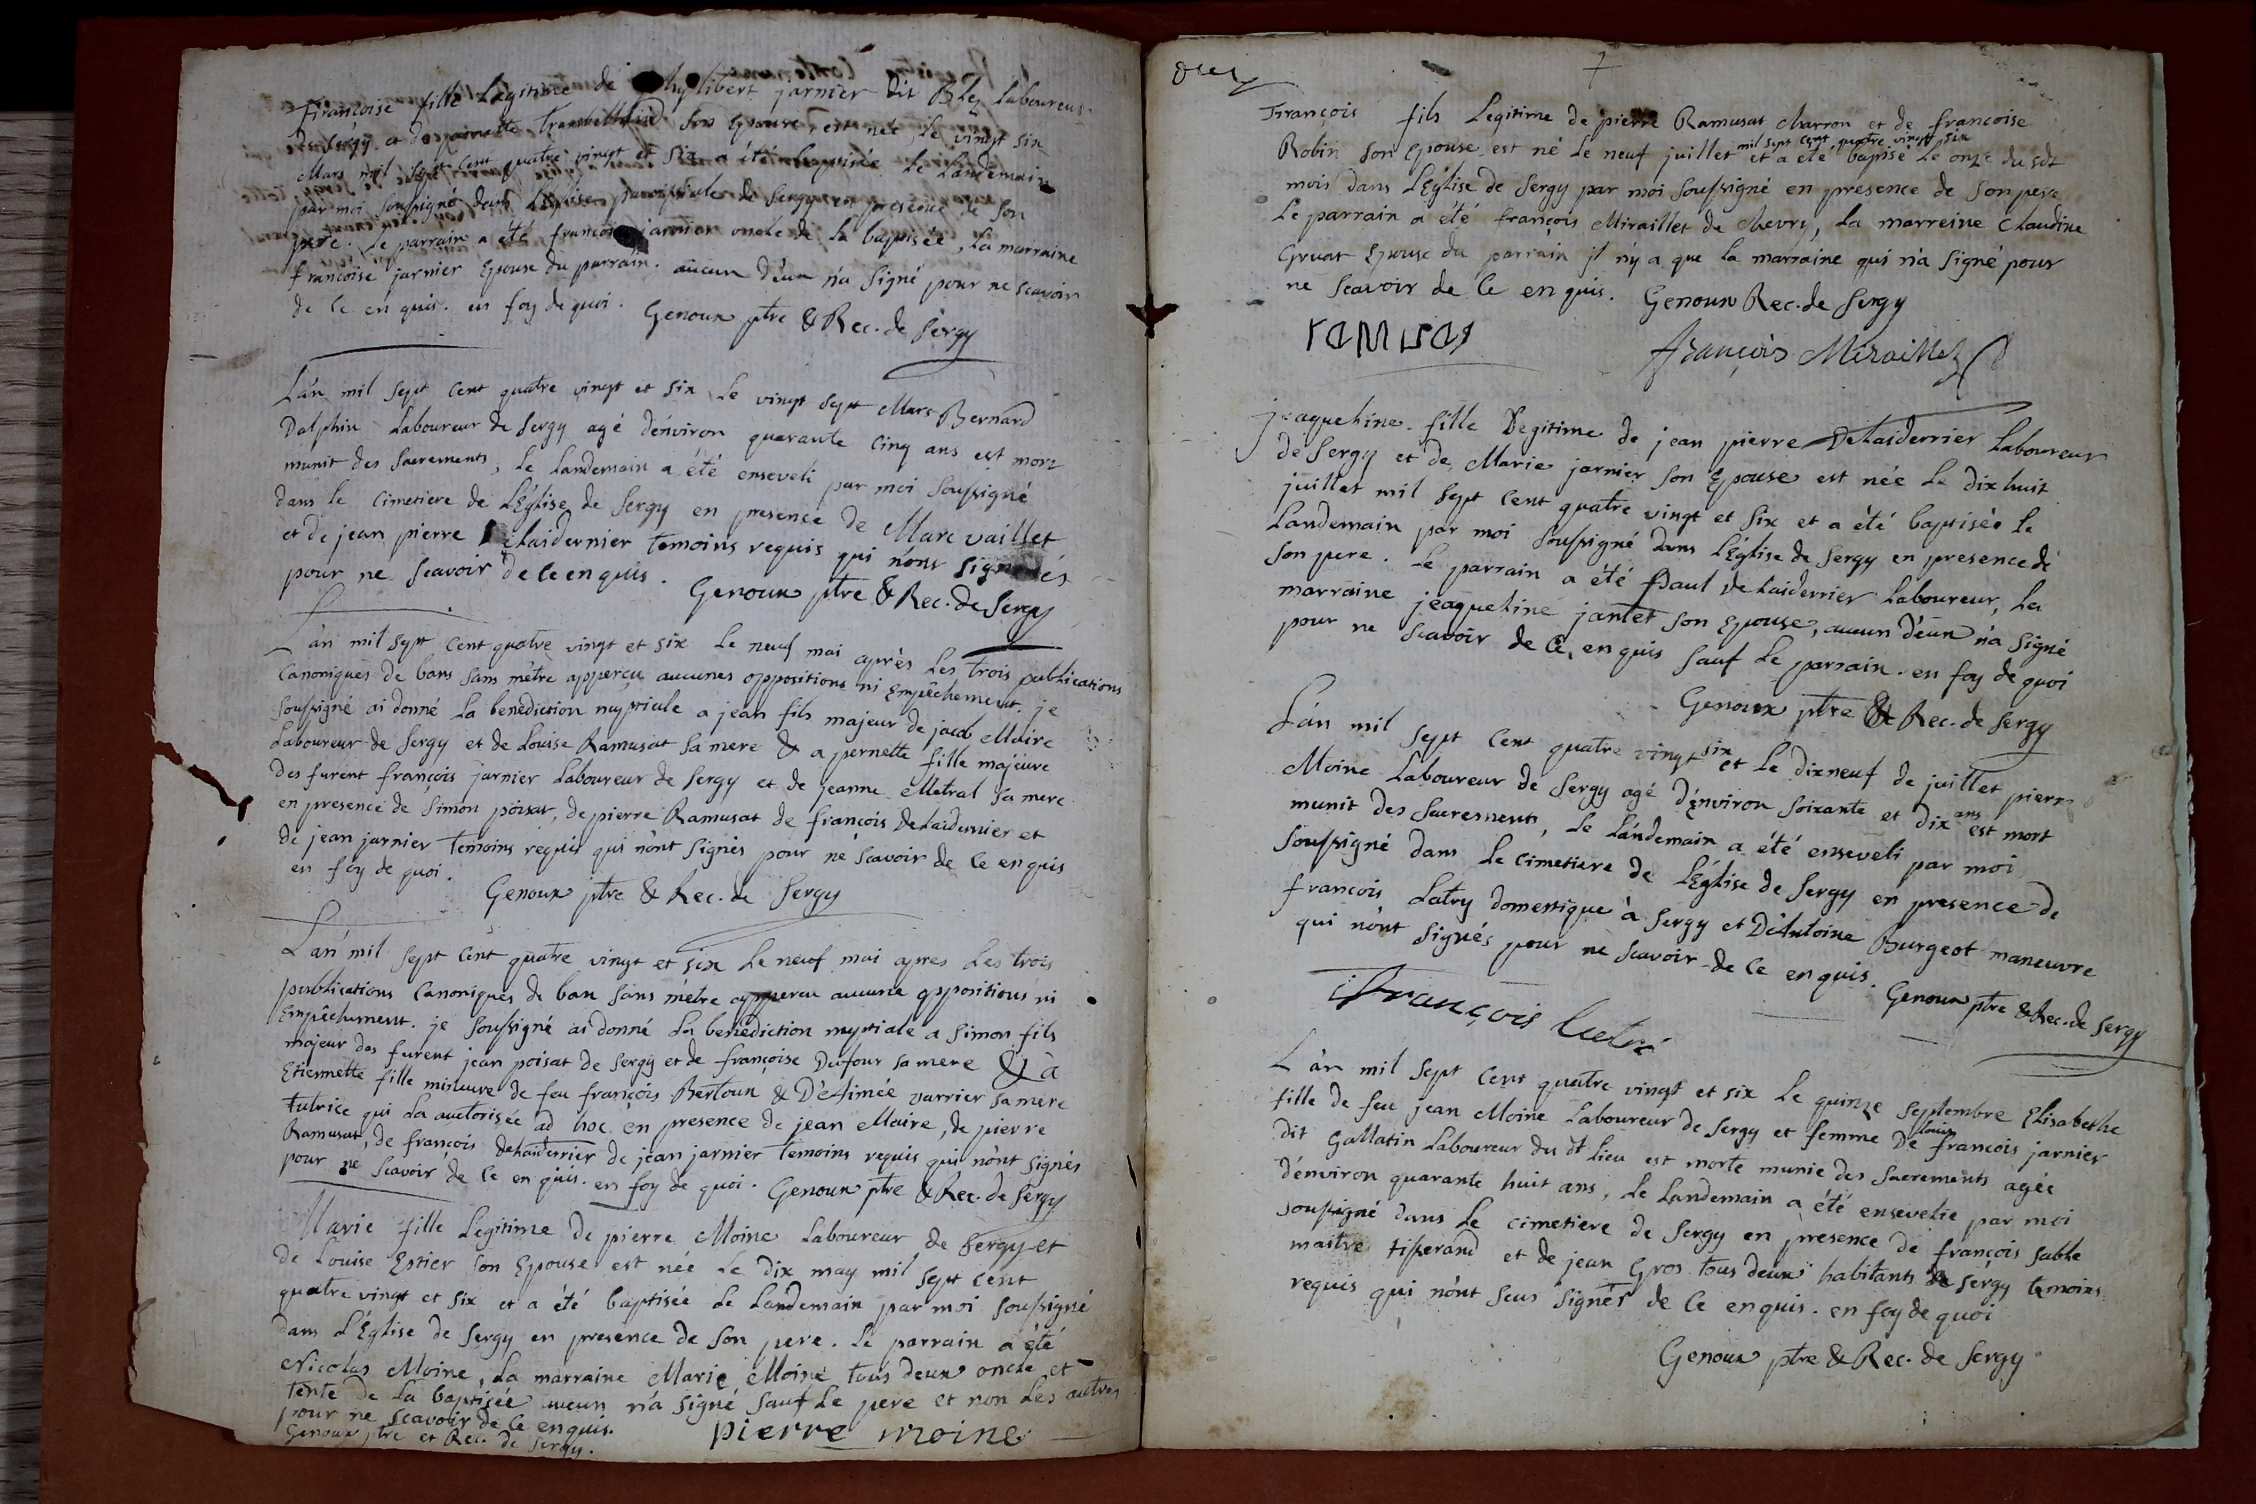 Françoise fille Legitime de phylibert jarnier dit Bley Laboureur
de sergy et de pernette son Epouse est née Le vingt six
Mars mil sept cent quatre vingt et six a été baptisée Le Landemain
par moi soussigné dans L'Eglise paroissiale de Sergy en presence de son
pere. Le parrain a été francois jarnier oncle de la baptisée, La marraine
francoise jarnier Epouse du parrain. aucun d'eux n'a signé pour ne scavoir
de ce enquis. en foy de quoi. Genoux ptre & Rec. de Sergy
L'an mil sept cent quatre vingt et six Le vingt sept Mars Bernard
Dalphin Laboureur de Sergy agé d'environ quarante cinq ans est mort
munit des sacrements, Le Landemain a été enseveli par moi soussigné
dans Le Cimetiere de L'Eglise de Sergy en presence de Marc vaillet
et de jean pierre Delaidernier temoins requis qui n'ont signés
pour ne scavoir de ce enquis. Genoux ptre & Rec. de Sergy
L'an mil sept cent quatre vingt et six Le neuf mai après Les trois publications
Canoniques de bans sans m'être apperçu aucunes oppositions ni Empêchement. je
soussigné ai donné La benediction nuptiale a jean fils majeur de jacob Maire
Laboureur de Sergy et de Louise Ramusat sa mere & a pernette fille majeure
des furent françois jarnier Laboureur de Sergy et de jeanne Metral sa mere
en presence de Simon poisat, de pierre Ramusat de françois Delaidernier et
de jean jarnier temoins requis qui n'ont signés pour ne scavoir de ce enquis
en foy de quoi. Genoux ptre & Rec. de Sergy
L'an mil sept cent quatre vingt et six Le neuf mai apres Les trois
publications Canoniques de ban sans m'etre apperçu aucune oppositions ni
Empêchement. je soussigné ai donné La benediction nuptiale a Simon fils
majeur des furent jean poisat de Sergy et de françoise Dufour sa mere & a
Etiennette fille mineure de feu françois Bertoux & D'Aimée varrier sa mere
tutrice qui La auctorisée ad hoc en presence de jean Maire, de pierre
Ramusat, de françois delaiderrier de jean jarnier temoins requis qui n'ont signés
pour ne scavoir de ce enquis. en foy de quoi. Genoux ptre & Rec. de Sergy
Marie fille Legitime de pierre Moine Laboureur de Sergy et
de Louise Estier son Epouse est née Le dix may mil sept cent
quatre vingt et six et a été baptisée Le Landemain par moi soussigné
dans L'Eglise de Sergy en presence de son pere. Le parrain a été
Nicolas Moine, La marraine Marie Moine tous deux oncle et
tente de La baptisée aucun n'a signé sauf Le pere et non Les autres
pour ne scavoir de ce enquis.
Genoux ptre et Rec. de Sergy. pierre moine
François fils Legitime de pierre Ramusat charron et de françoise
Robin son Epouse est né Le neuf juillet mil sept cent quatre vingt six et a été baptisé Le onze du sdt
mois dans L'Eglise de Sergy par moi soussigné en presence de son pere
Le parrain a été françois Miraillet de chevry, La marreine Claudine
Gruat Epouse du parrain jl n'y a que la marraine qui n'a signé pour
ne scavoir de ce enquis. Genoux Rec. de Sergy
ramusat François Miraillet
jeaqueline fille Legitime de jean pierre Delaiderrier Laboureur
de Sergy et de Marie jarnier son Epouse est née Le dix huit
juillet mil sept cent quatre vingt et six et a été baptisée Le
Landemain par moi soussigné dans L'Eglise de Sergy en presence de
son pere. Le parrain a été Paul delaiderrier Laboureur, La
marraine jeaqueline jantet son Epouse, aucun d'eux n'a signé
pour ne scavoir de ce, enquis sauf Le parrain. en foy de quoi
Genoux ptre & Rec. de Sergy
L'an mil sept cent quatre vingt six et Le dixneuf de juillet pierre
Moine Laboureur de Sergy agé d'environ soixante et dix ans est mort
munit des sacrements, Le Landemain a été enseveli par moi
soussigné dans Le Cimetiere de L'Eglise de Sergy en presence de
françois Latry domestique à Sergy et D'Antoine Burgeot maneuvre
qui n'ont signés pour ne scavoir de ce enquis. Genoux ptre & Rec. de Sergy
François
L'an mil sept cent quatre vingt et six Le quinze septembre Elisabethe
fille de feu jean Moine Laboureur de Sergy et femme De Louis françois jarnier
dit Gallatin Laboureur du dt lieu est morte munie des sacrements agée
d'environ quarante huit ans, Le Landemain a été ensevelie par moi
soussigné dans Le cimetiere de Sergy en presence de françois sable
maitre tisserand et de jean Gros tous deux habitants de Sergy temoins
requis qui n'ont seus signés de ce enquis. en foy de quoi
Genoux ptre & Rec. de Sergy